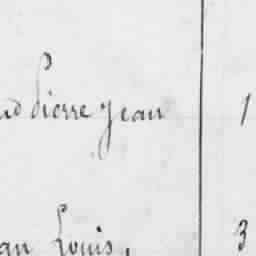 Pierre Jean 1
Louis, 3